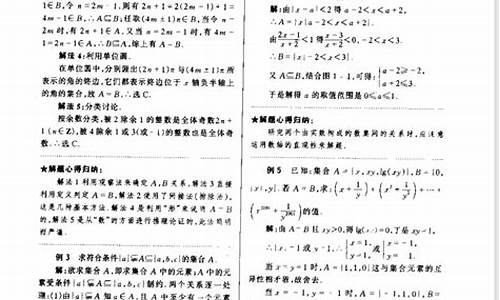 1∈B,令 n=2m-1,则有2n+1=2(2m-1)+1=
4m-1∈B,∴A⊆B;任取(4m±1)n∈B,当令 n=
2m时,有2n+1∈A.又当 n=2m-1时,有4m-
1=2n-1∈A,∴B⊆A,综上有A=B.
解法4:利用单位圆.
在单位圆中,分别跟出(2n+1)π与(4m±1)π所
表示的角的终边,它们都表示终边位于x轴负半轴上
的角的集合,故A=B.∴选C.
解法5:分类讨论.
按余数分类,被2除余1的整数是全体奇数2n+
1(n∈Z),被4除余1或3(或-1)的整数也是全体奇
数.∴选C.
★解题心得归纳:
解法1利用观察法来确定A,B关系.解法3直接
利用定义判定A=B.解法2使用了列举法(排除法),
这是几种基本方法.解法4是利用“形”来说明A=B
的,解法5是从“数”的方面进行推理论证的,此法简明
而严谨.
例3 求符合条件{a}⫋A⊆{a,b,c}的集合A.
解:欲求集合A,即求集合A中的元素;A中的元
素受条件{a}⫋A⊆{a,b,c}制约.两个关系逐一处
理:(1)由{a}⫋A知a∈A,且A中至少有一个元素
解:由|x-a|<2得a-2<x<a+2,
∴A={x|a-2<x<a+2}.
由(2x-1)/(x+2)<1得(x-3)/(x+2)<0,-2<x<3.
∴B={x|-2<x<3}.
又A⊆B,结合图1-1,可得:{a-2≥-2, a+2≤3.
于是解得a的取值范围是0≤a≤1.
★解题心得归纳:
研究两个由实数构成的数集间的关系时,应注意
运用数轴的直观性来解题.
例5 已知:集合A={x,xy,lg(xy)},B={0,
|x|,y}.若A=B,求:(x+1/y)+(x²+1/y²)+…+
的值.
解:由A=B且xy>0,得lg(xy)=0,于是xy=1,
∴|x|=1或y=1,∴{x=1, y=1,或{x=-1, y=-1.
当x=y=1时,A={1,1,0}这与集合元素的互
异性相矛盾,故舍去.
当x=y=-1时,A={-1,1,0},B={0,1,